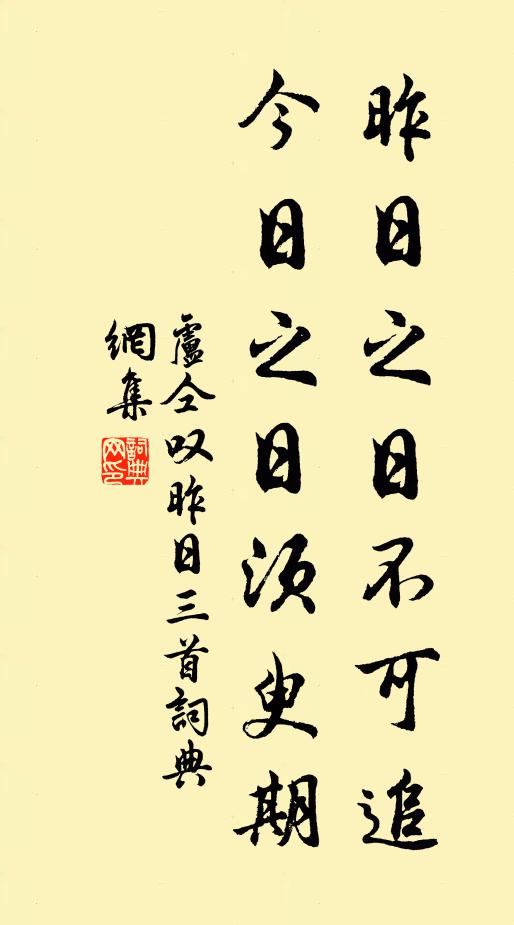 昨日之日不可追
今日之日須臾期
盧仝叹昨日三首詞典
網集
詞典网印